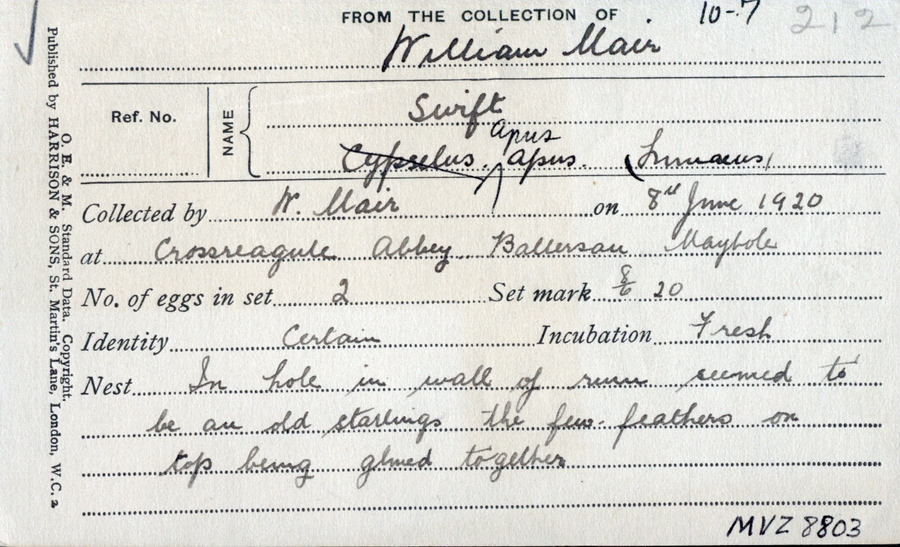 FROM THE COLLECTION OF 10-7 212
William Mair
Ref. No. NAME Swift
apus
Cypselus apus. (Linnaeus)
Collected by W. Mair on 8th June 1920
at Crossreagule Abbey Balterson Maybole
No. of eggs in set 2 Set mark 8/6 20
Identity Certain Incubation Fresh
Nest In hole in wall of ruin seemed to
be an old starlings the few feathers on
top being glued together
MVZ 8803
O. E. & M. Standard Data. Copyright.
Published by HARRISON & SONS, St. Martin's Lane, London, W.C. 2